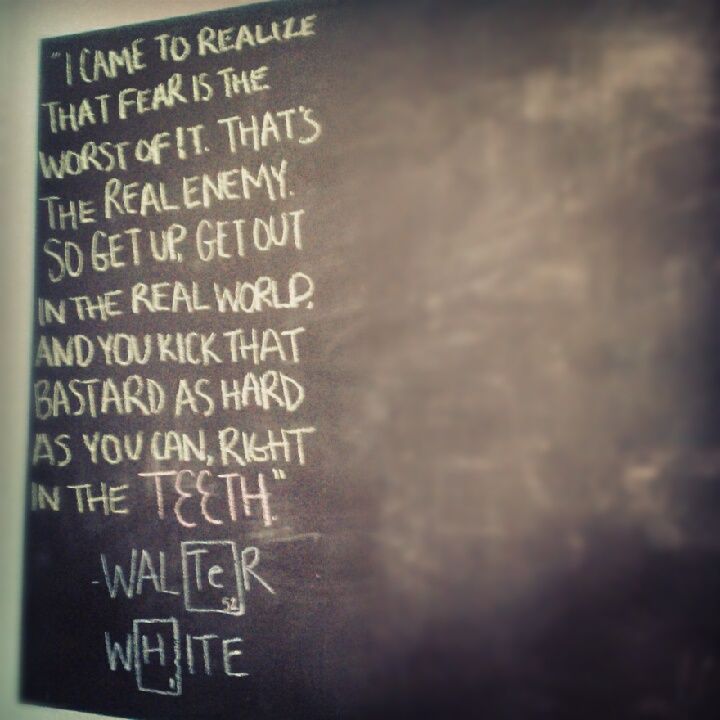 "I CAME TO REALIZE
THAT FEAR IS THE
WORST OF IT. THAT'S
THE REAL ENEMY.
SO GET UP, GET OUT
IN THE REAL WORLD,
AND YOU KICK THAT
BASTARD AS HARD
AS YOU CAN, RIGHT
IN THE TEETH."
-WALTeR
52
WHITE